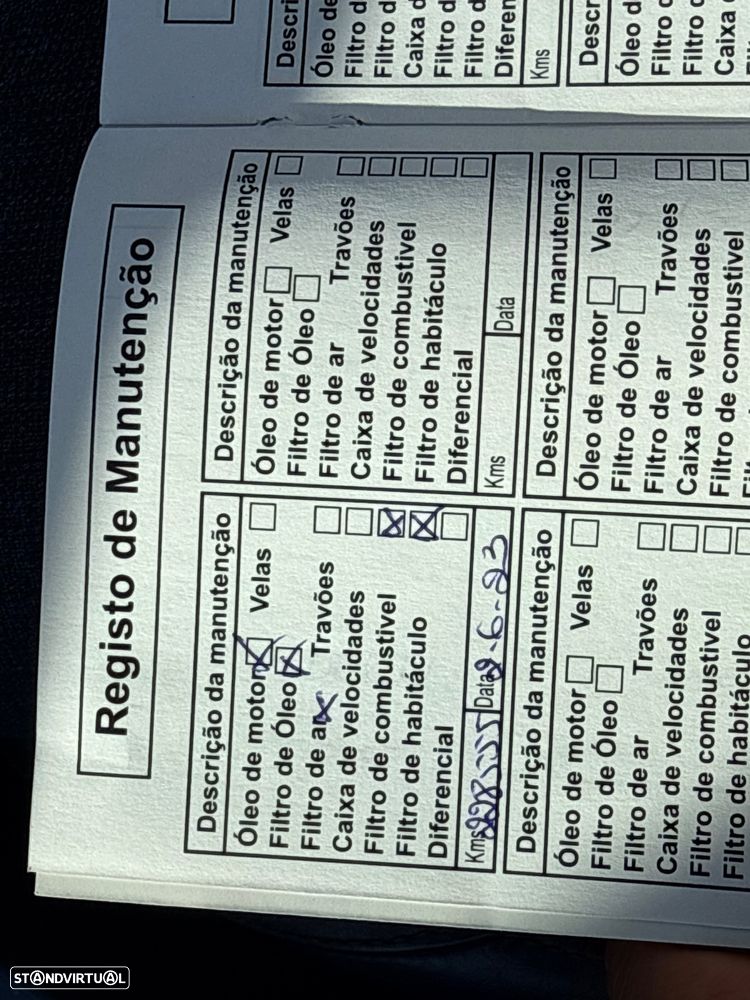 Registo de Manutenção
Descrição da manutenção
Óleo de motor Velas
Filtro de Óleo
Filtro de ar Travões
Caixa de velocidades
Filtro de combustivel
Filtro de habitáculo
Diferencial
Kms Data 9.6.23
Descrição da manutenção
Óleo de motor Velas
Filtro de Óleo
Filtro de ar Travões
Caixa de velocidades
Filtro de combustivel
Filtro de habitáculo
Diferencial
Kms Data
Descrição da manutenção
Óleo de motor Velas
Filtro de Óleo
Filtro de ar Travões
Caixa de velocidades
Filtro de combustivel
Filtro de habitáculo
Descrição da manutenção
Óleo de motor Velas
Filtro de Óleo
Filtro de ar Travões
Caixa de velocidades
Filtro de combustivel
Descri
Óleo de
Filtro d
Filtro d
Caixa d
Filtro d
Filtro d
Diferen
Kms
Descr
Óleo d
Filtro
Filtro
Caixa
STANDVIRTUAL